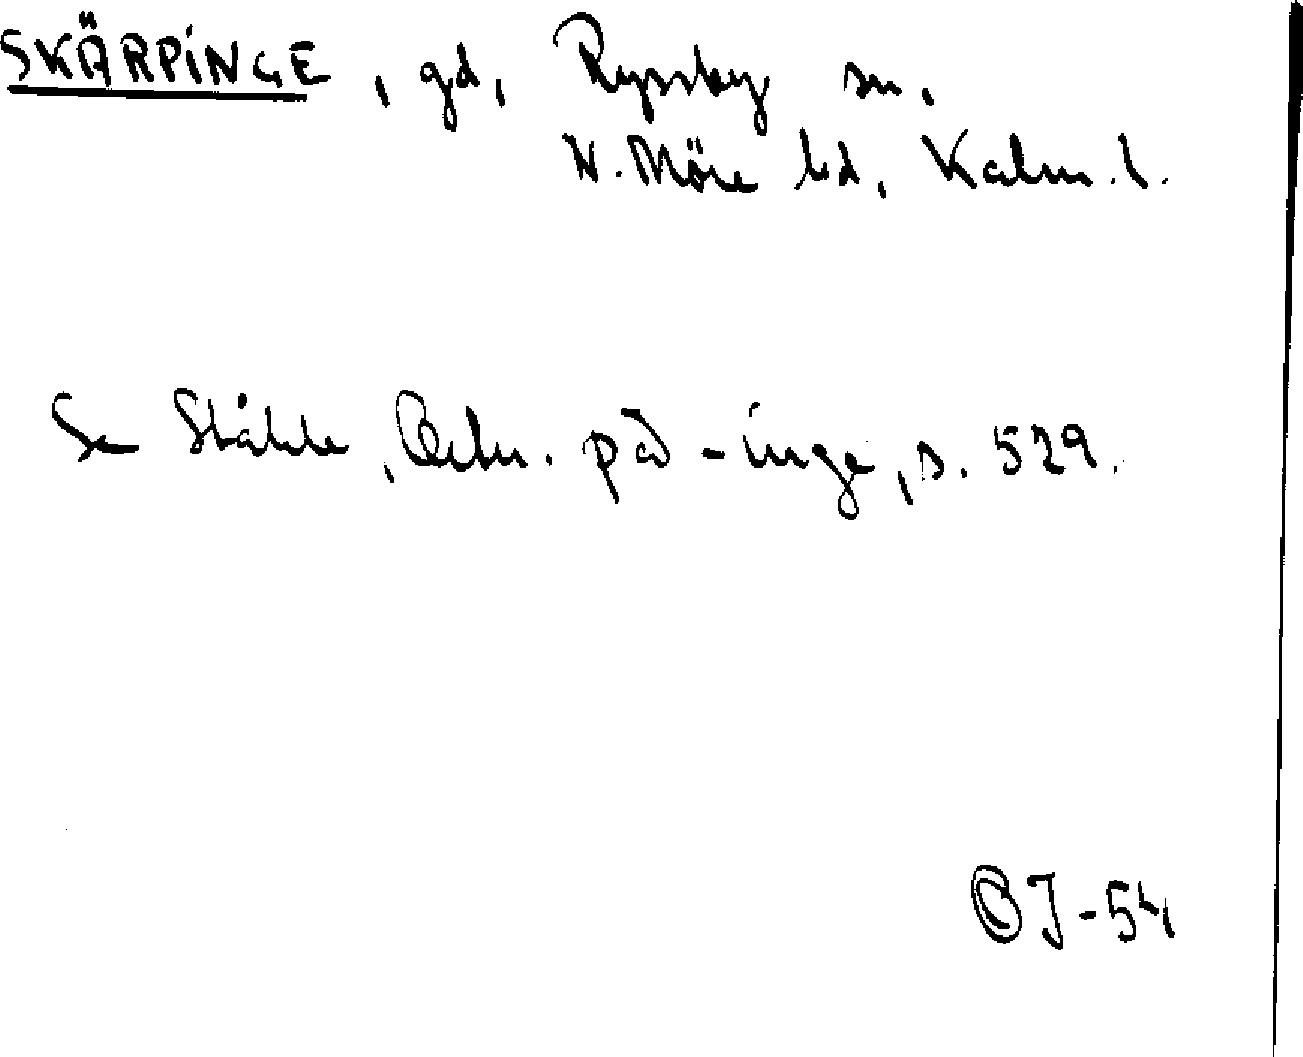 SKÄRPINGE, gd, Ryssby sn,
N. Möre hd, Kalm. l.
Se Ståhle, Ortn. på -inge, s. 529.
J-54